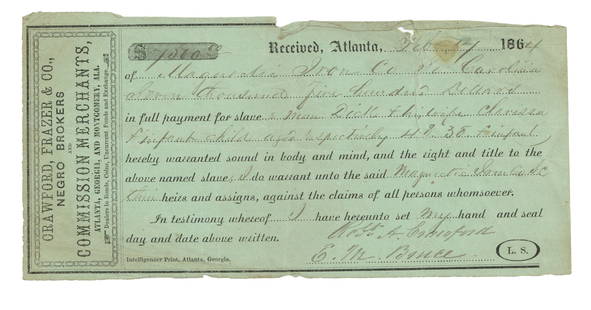 CRAWFORD, FRAZER & CO.,
NEGRO BROKERS
AND
COMMISSION MERCHANTS,
ATLANTA, GEORGIA, AND MONTGOMERY, ALA.
Dealers in Bonds, Coins, Uncurrent Funds and Exchange.
$7500 00
Received, Atlanta, Feb 1864
of Magnetic Iron Co So Carolina
Seven thousand five hundred Dollars
in full payment for slaves Man Dick & Clarissa
& infant child aged respectively &
hereby warranted sound in body and mind, and the right and title to the
above named slaves I do warrant unto the said Magnetic
heirs and assigns, against the claims of all persons whomsoever.
In testimony whereof I have hereunto set My hand and seal
day and date above written.
Robt A Crawford
E. M. Bruce
L. S.
Intelligencer Print, Atlanta, Georgia.